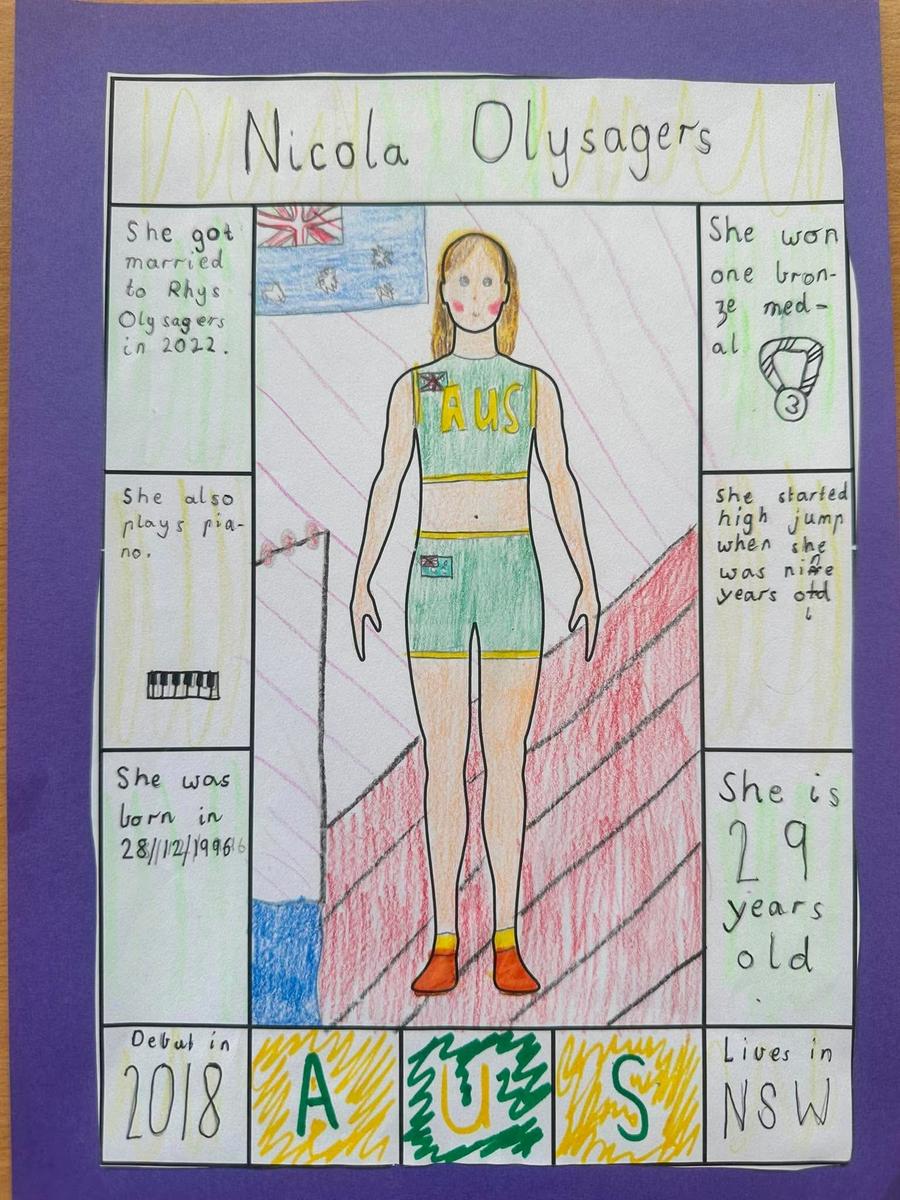 Nicola Olysagers
She got
married
to Rhys
Olysagers
in 2022.
She also
plays pia-
no.
She was
born in
28/12/1996
Debut in
2018
AUS
A U S
She won
one bron-
ze med-
al
3
She started
high jump
when she
was nine
years old
She is
29
years
old
.
Lives in
NSW